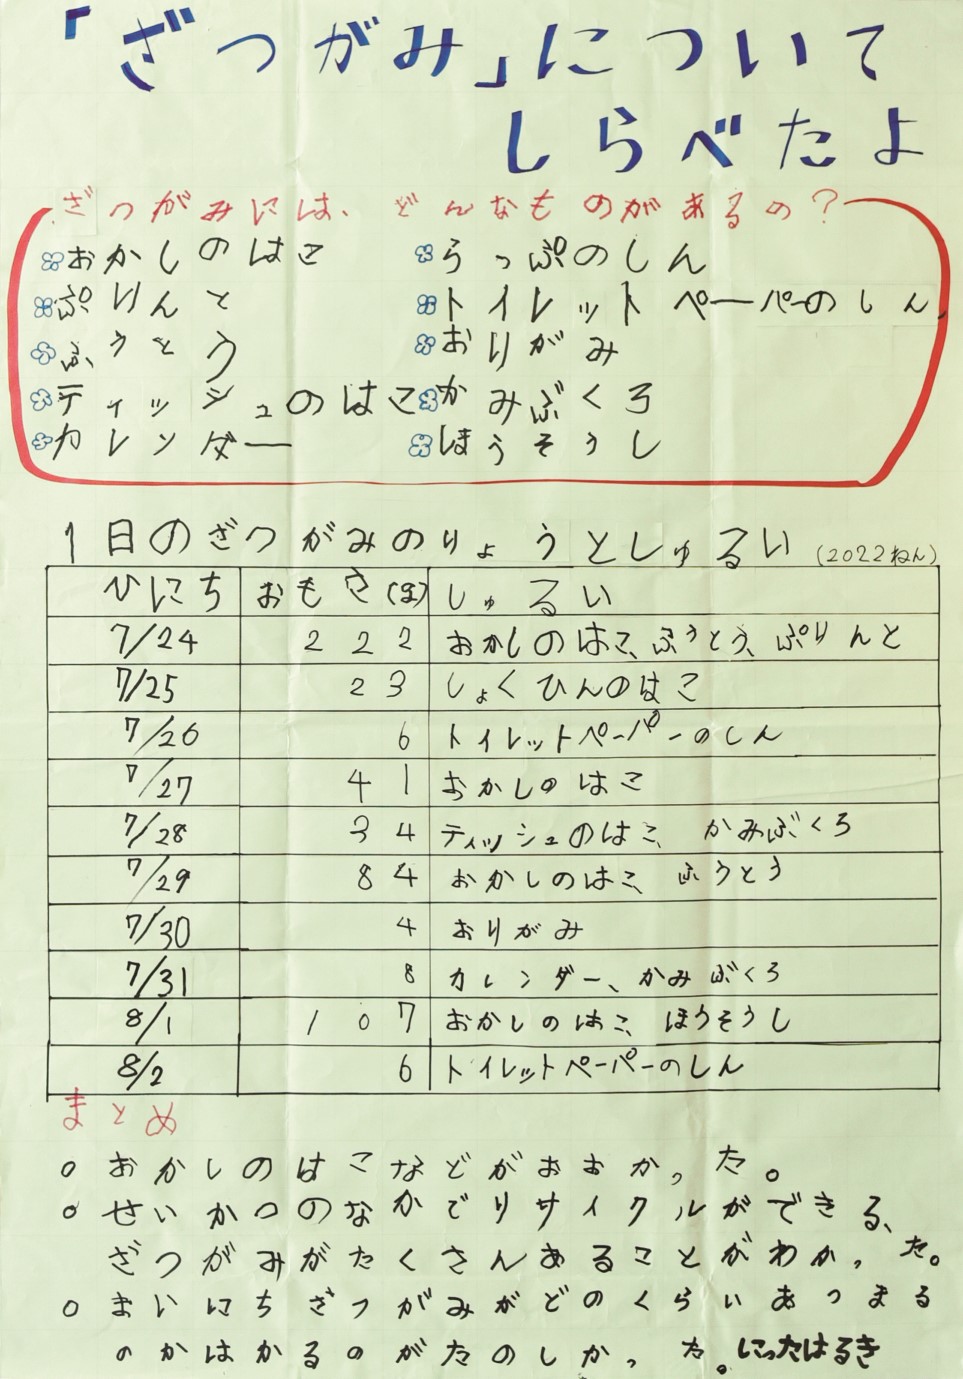 「ざつがみ」について
しらべたよ
ざつがみには、どんなものがあるの?
おかしのはこ
らっぷのしん
ぷりんと
トイレットペーパーのしん
ふうとう
おりがみ
ティッシュのはこ
かみぶくろ
カレンダー
ほうそうし
1日のざつがみのりょうとしゅるい(2022ねん)
ひにち おもさ(g) しゅるい
7/24 222 おかしのはこ、ふうとう、ぷりんと
7/25 23 しょくひんのはこ
7/26 6 トイレットペーパーのしん
7/27 41 おかしのはこ
7/28 34 ティッシュのはこ、かみぶくろ
7/29 84 おかしのはこ、ふうとう
7/30 4 おりがみ
7/31 8 カレンダー、かみぶくろ
8/1 107 おかしのはこ、ほうそうし
8/2 6 トイレットペーパーのしん
まとめ
○おかしのはこなどがおおかった。
○せいかつのなかでリサイクルができる、
ざつがみがたくさんあることがわかった。
○まいにちざつがみがどのくらいあつまる
のかはかるのがたのしかった。にったはるき